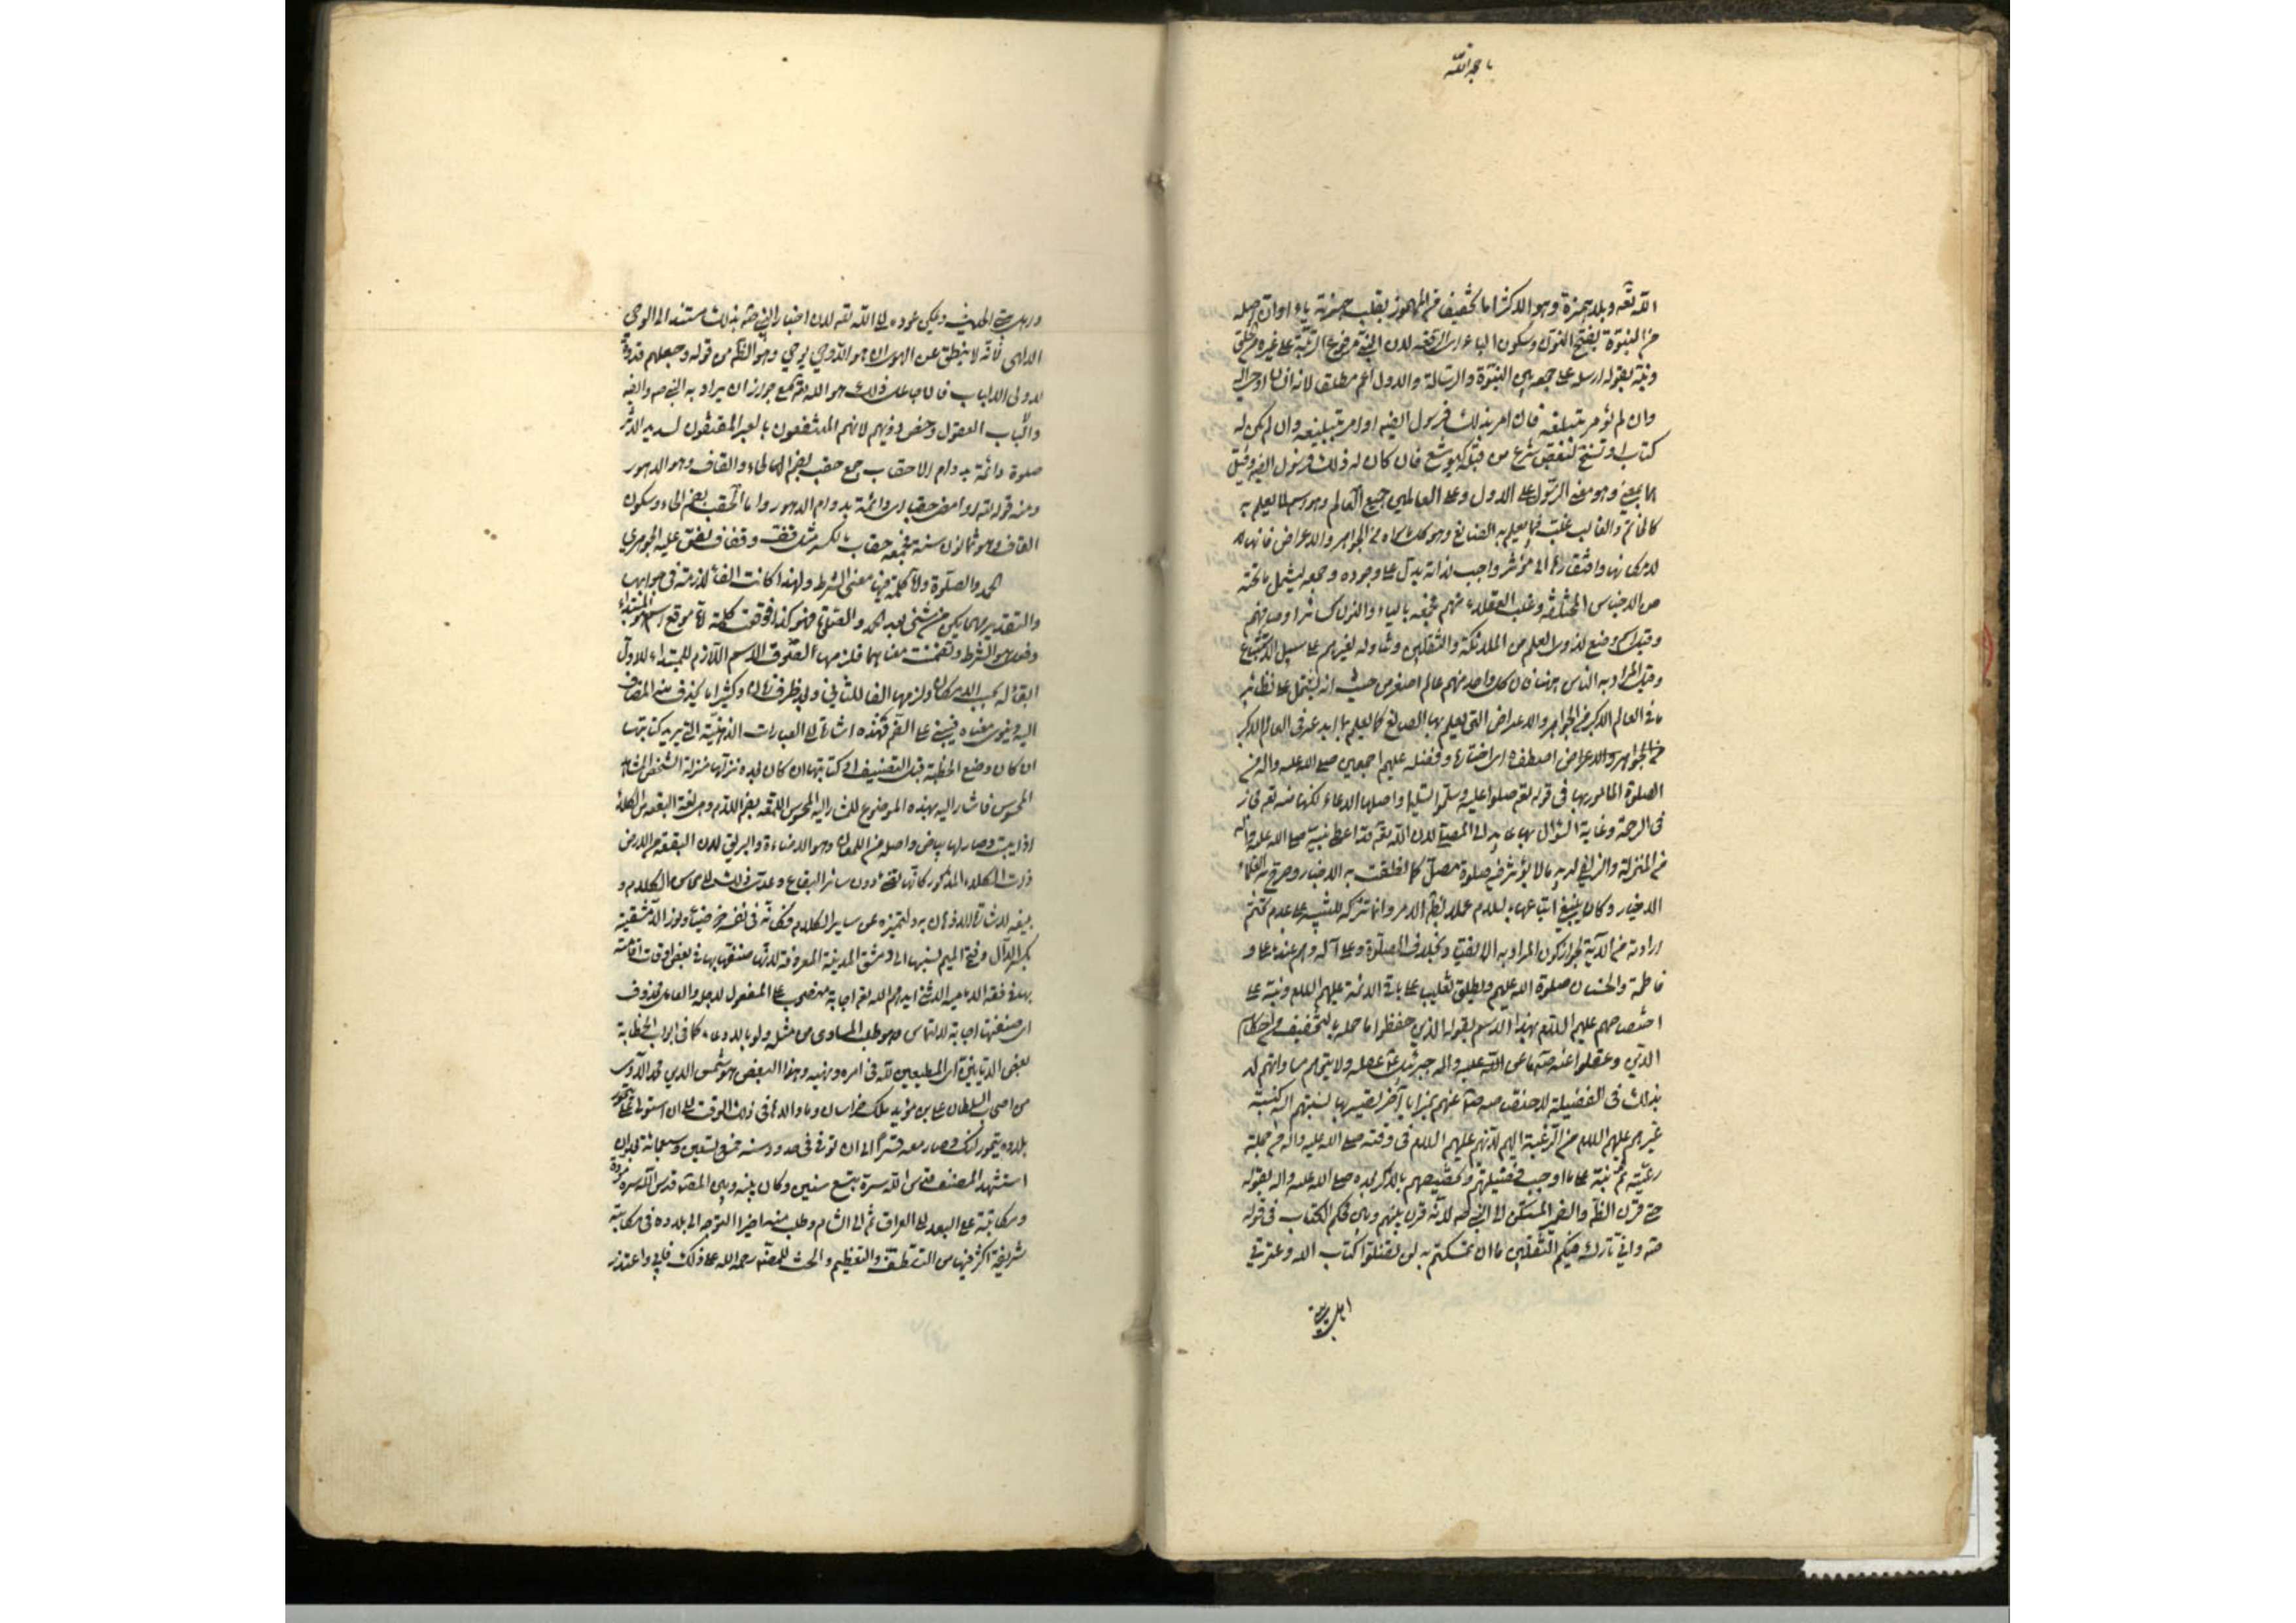 يا حجة الله
الله تعه وبلا همزة وهو الاكثر اما تخفيف من المهموز بقلب همزته ياء او ان اصله
من النبوة بفتح النون وسكون الباء اى الرفعه لان النبى مرفوع الرتبة على غيره من الخلق
ونبه بقوله ارسله على جمعه بين النبوة والرسالة والاول اعم مطلقا لانه انسان اوحى اليه
وان لم يؤمر بتبليغه فان امر بذلك فرسول ايضه او امر بتبليغه وان لم يكن له
كتاب او نسخ لبعض شرع من قبله كيوشع فان كان له ذلك فرسول ايضه وقيل
هما بمعنى وهو معنى الرسول على الاول وعلى العالمين جميع العالم وهو اسم لما يعلم به
كالخاتم والقالب غلب فيما يعلم به الصانع وهو كل ما سواه من الجواهر والاعراض فانها
لامكانها وافتقارها الى مؤثر واجب لذاته يدل على وجوده وجمعه ليشمل ما تحته
من الاجناس المختلفة وغلب العقلاء منهم فجمعه بالياء والنون كسائر اوصافهم
وقيل اسم وضع لذوى العلم من الملائكة والثقلين وتناوله لغيرهم على سبيل الاستتباع
وقيل المراد به الناس ههنا فان كل واحد منهم عالم اصغر من حيث انه يشتمل على نظائر
ما فى العالم الاكبر من الجواهر والاعراض التى يعلم بها الصانع كما يعلم بما ابدعه فى العالم الاكبر
من الجواهر والاعراض اصطفاه اى اختاره وفضله عليهم اجمعين صلى الله عليه واله من
الصلوة المامور بها فى قوله تعه صلوا عليه وسلموا تسليما واصلها الدعاء لكنها منه تعه مجاز
فى الرحمة وغاية السؤال بها عايد الى المصلى لان الله تعه قد اعطى نبيه صلى الله عليه واله
من المنزلة والزلفى لديه ما لا يؤثر فيه صلوة مصل كما نطقت به الاخبار وصرح به العلماء
الاخيار وكان ينبغى اتباعها بالسلام عملا بظاهر الامر وانما تركه للتنبيه على عدم تحتم
ارادته من الآية لجواز كون المراد به الانقياد بخلاف الصلوة وعلى آله وهم عندنا على و
فاطمة والحسنان صلوة الله عليهم ويطلق تغليبا على باقى الائمة عليهم السلم ونبه على
اختصاصهم عليهم السلم بهذا الاسم بقوله الذين حفظوا ما حمله بالتخفيف من احكام
الدين وعقلوا عنه صه ما عن الله عليه واله جبرئيل عه عقله ولا يتوهم مساواتهم له
بذلك فى الفضيلة لاختصاصه صه عنهم بمزايا آخر تصير بها نسبتهم اليه كنسبة
غيرهم عليهم السلم من الرعية اليهم لانهم عليهم السلم فى وقته صلى الله عليه واله من جملة
رعيته ثم نبه على ما اوجب فضيلتهم وتخصيصهم بالذكر بعده صلى الله عليه واله بقوله
حتى قرن الظاهر والضمير المستكن الى النبى صه لانه قرن بينهم وبين محكم الكتاب فى قوله
صه وانى تارك فيكم الثقلين ما ان تمسكتم به لن تضلوا كتاب الله وعترتى
اهل بيتى
ويمكن عوده الى الله تعه لان اخبار النبى صه بذلك مستند الى الوحى
الالهى لانه لا ينطق عن الهوى ان هو الا وحى يوحى وهو الظاهر من قوله وجعلهم قدوة
لاولى الالباب فان الفاعل ذلك هو الله تعه مع جواز ان يراد به النبى صه والضه
والالباب العقول وخص ذويهم لانهم المنتفعون بالعبر المقتفون لسديد الاثر
صلوة دائمة بدوام الاحقاب جمع حقب بضم الحاء والقاف وهو الدهور
ومنه قوله تعه او امضى حقبا اى دائمة بدوام الدهور واما الحقب بضم الحاء وسكون
القاف وهو ثمانون سنة فجمعه حقاب بالكسر مثل قف وقفاف نص عليه الجوهرى
الحمد والصلوة واما كلمة فيها معنى الشرط ولهذا كانت الفاء لازمة فى جوابها
والتقدير مهما يكن من شئ بعد الحمد والصلوة فهو كذا فوقعت كلمة اما موقع اسم هو المبتداء
وفعل هو الشرط وتضمنت معناهما فلزمها لصوق الاسم اللازم للمبتداء للاول
ابقاء له بحسب الامكان ولزمها الفاء للثانى وبعد ظرف زمان وكثيرا ما يحذف منه المضاف
اليه وينوى معناه فيبنى على الضم فهذه اشارة الى العبارات الذهنية التى يريد كتابتها
ان كان وضع الخطبة قبل التصنيف او كتابتها ان كان بعده نزلها منزلة الشخص المشاهد
المحسوس فاشار اليه بهذه الموضوع للمشار اليه المحسوس اللمعة بضم اللام وهى لغة البقعة من الكلاء
اذا يبست وصار لها بياض واصله من اللمعان وهو الاضاءة والبريق لان البقعة من الارض
ذات الكلاء المذكور كانها تضئ دون سائر البقاع وعدى ذلك الى محاسن الكلام و
بليغه لاستنارة الاذهان به ولتميزه عن سائر الكلام فكانه فى نفسه ذو ضياء ونور الدمشقية
بكسر الدال وفتح الميم نسبها الى دمشق المدينة المعروفة لانه صنفها بها فى بعض اوقات اقامته
بها فى فقه الامامية الاثنى عشر ايدهم الله تعه اجابة منصوب على المفعول لاجله والعامل محذوف
اى صنفتها اجابة لالتماس وهو طلب المساوى من مثله ولو بالادعاء كما فى ابواب الخطابة
بعض الديانين اى المطيعين لله فى امره ونهيه وهذا البعض هو شمس الدين محمد الآوى
من اصحاب السلطان على بن مؤيد ملك خراسان وما والاها فى ذلك الوقت الى ان استولى على
بلاده تيمور لنك وصار معه قسرا الى ان توفى فى حدود سنة خمس وتسعين وسبعمائة بعد ان
استشهد المصنف قدس الله سره بتسع سنين وكان بينه وبين المصنف قدس الله سره مودة
ومكاتبة على البعد الى العراق ثم الى الشام وطلب منه اخيرا التوجه الى بلاده فى مكاتبة
شريفة اكثر فيها من التلطف والتعظيم والحث للمصنف رحمه الله على ذلك فابى واعتذر